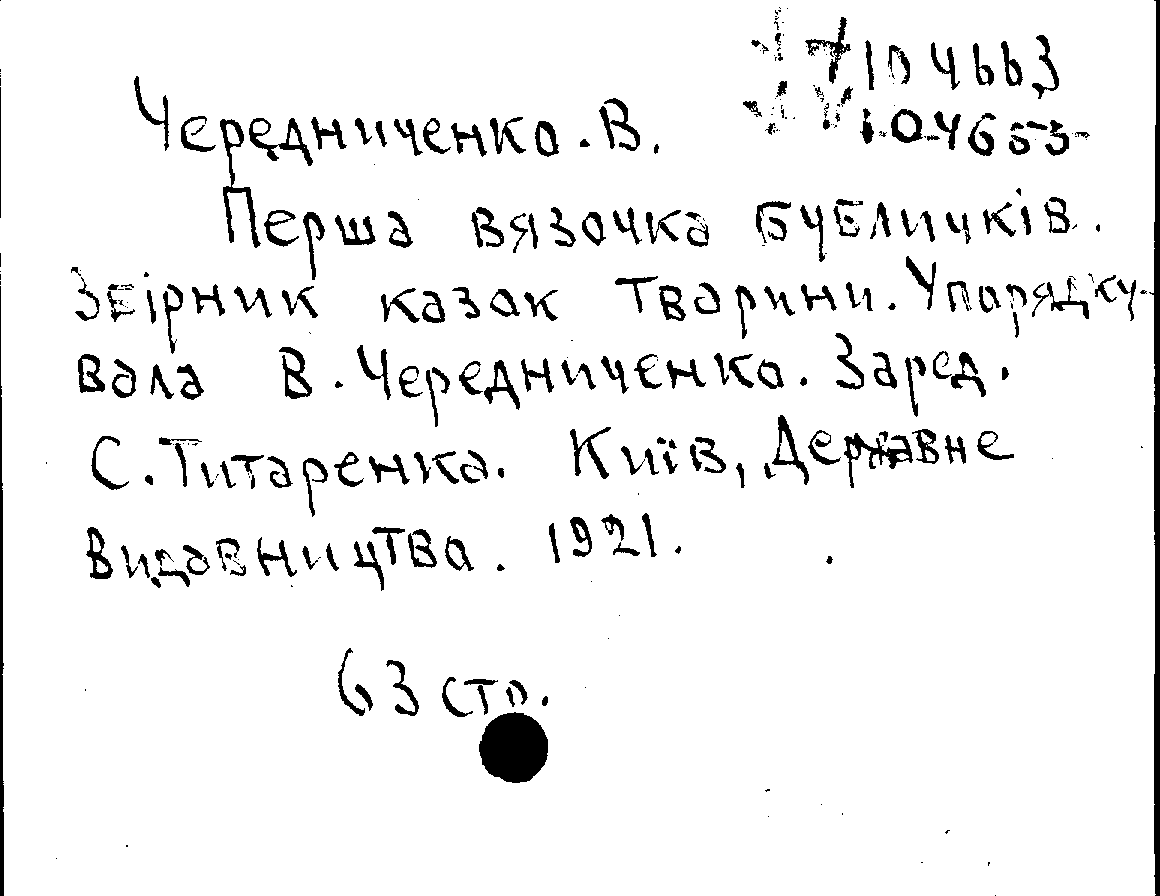 104663
Чередниченко. В.
104655
Перша вязочка бубличків.
Збірник казок тварини. Упорядку-
вала В. Чередниченко. Заред.
С. Титаренка. Київ, Державне
видавництва. 1921.
63 стр.